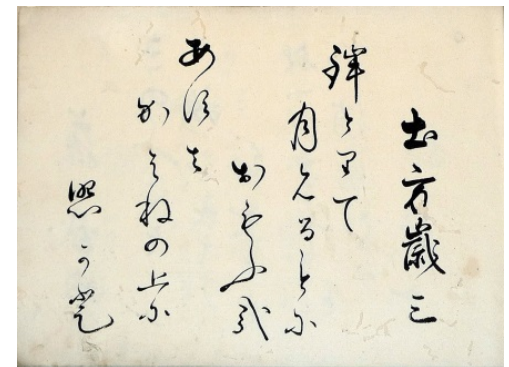 土方歳三
鉾とりて
月見ることに
おもふ哉
あすは
かはねの上に
照かと